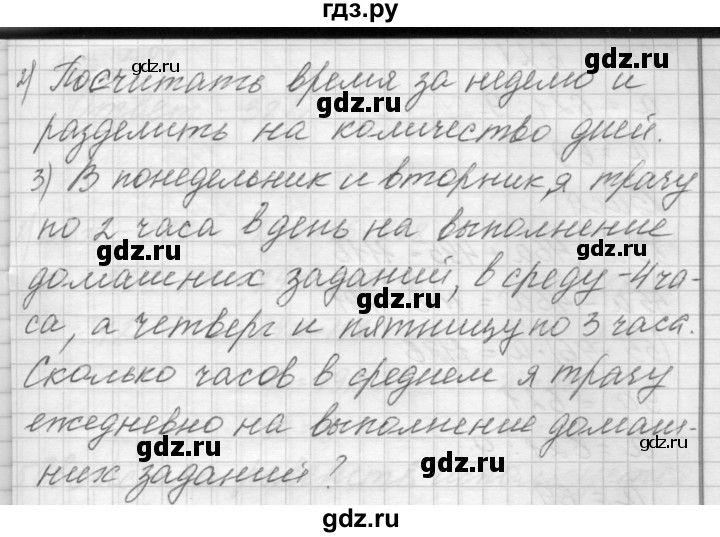 гдз.ру
2) Посчитать время за неделю и
разделить на количество дней.
3) В понедельник и вторник, я трачу
по 2 часа в день на выполнение
домашних заданий, в среду - 4 ча-
са, а четверг и пятницу по 3 часа.
Сколько часов в среднем я трачу
ежедневно на выполнение домаш-
них заданий?
gdz.ru
gdz.ru
gdz.ru
gdz.ru
gdz.ru
gdz.ru
gdz.ru
gdz.ru
gdz.ru
gdz.ru
gdz.ru